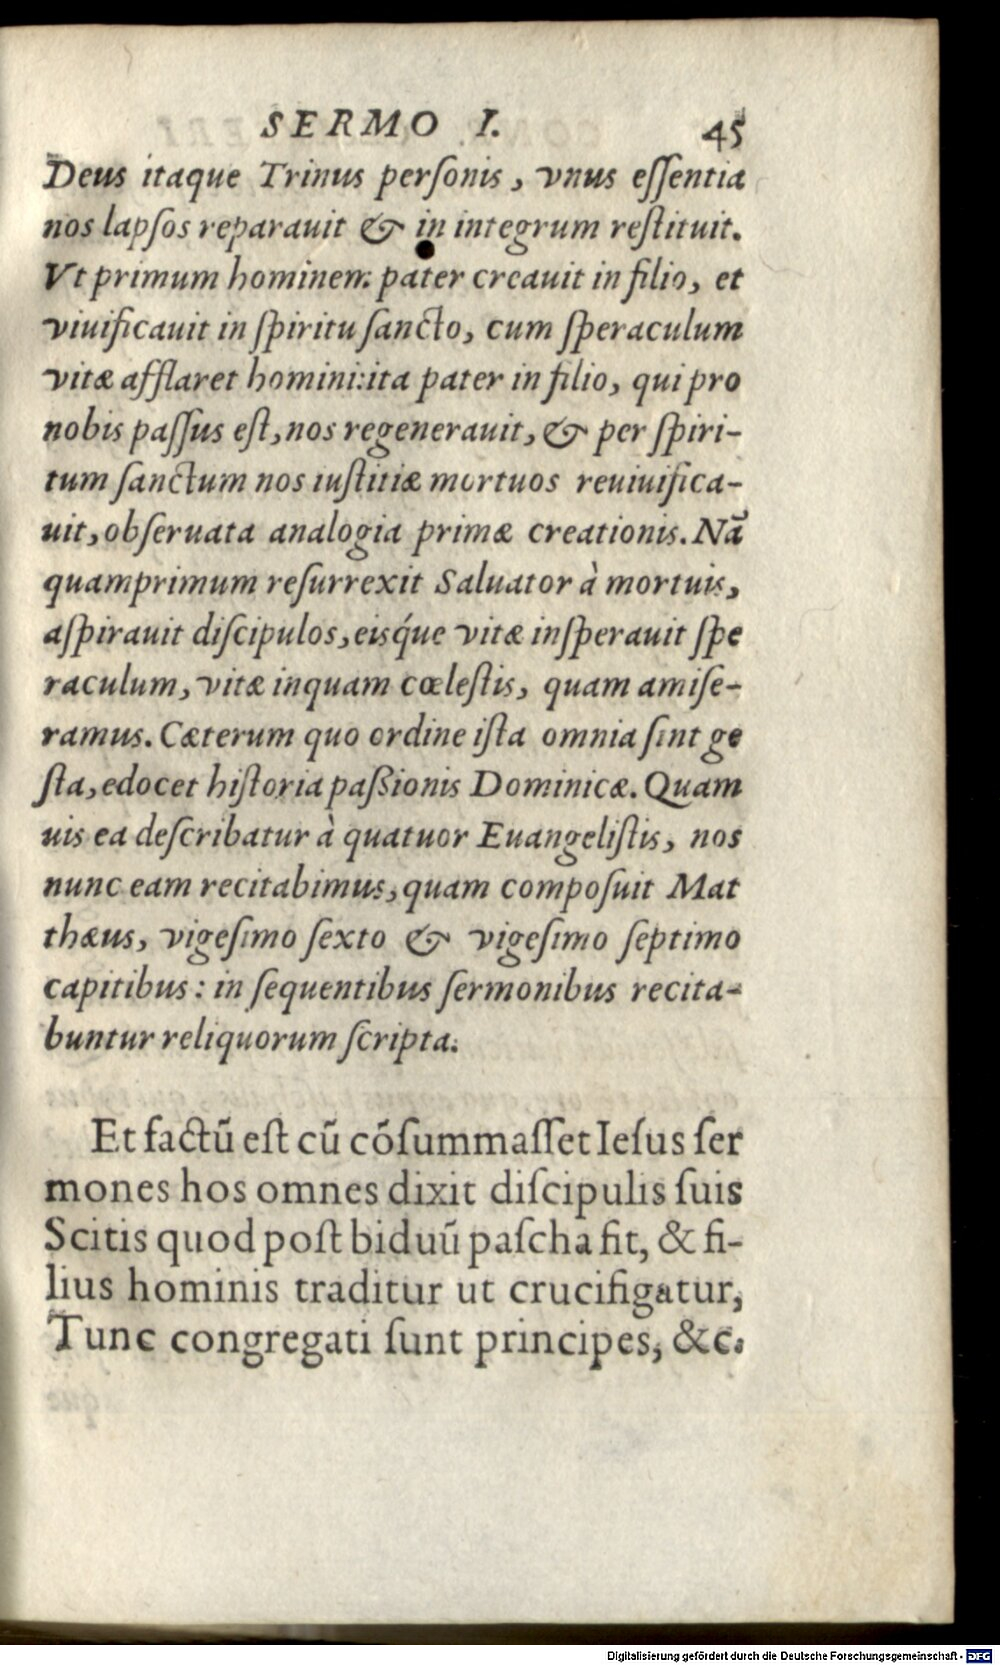 SERMO I. 45
Deus itaque Trinus perſonis, vnus eſſentia
nos lapſos reparauit & in integrum reſtituit.
Vt primum hominem pater creauit in filio, et
viuificauit in ſpiritu ſancto, cum ſperaculum
vitæ afflaret homini:ita pater in filio, qui pro
nobis paſſus eſt, nos regenerauit, & per ſpiri-
tum ſanctum nos iuſtitiæ mortuos reuiuifica-
uit, obſeruata analogia primæ creationis. Nā
quamprimum reſurrexit Saluator à mortuis,
aſpirauit diſcipulos, eisq́ue vitæ inſperauit ſpe
raculum, vitæ inquam cœleſtis, quam amiſe-
ramus. Cæterum quo ordine iſta omnia ſint ge
ſta, edocet hiſtoria paßionis Dominicæ. Quam
uis ea deſcribatur à quatuor Euangeliſtis, nos
nunc eam recitabimus, quam compoſuit Mat
thæus, vigeſimo ſexto & vigeſimo ſeptimo
capitibus: in ſequentibus ſermonibus recita-
buntur reliquorum ſcripta.
Et factū eſt cū cōſummaſſet Ieſus ſer
mones hos omnes dixit diſcipulis ſuis
Scitis quod poſt biduū paſcha fit, & fi-
lius hominis traditur ut crucifigatur,
Tunc congregati ſunt principes, &c.
Digitalisierung gefördert durch die Deutsche Forschungsgemeinschaft - DFG